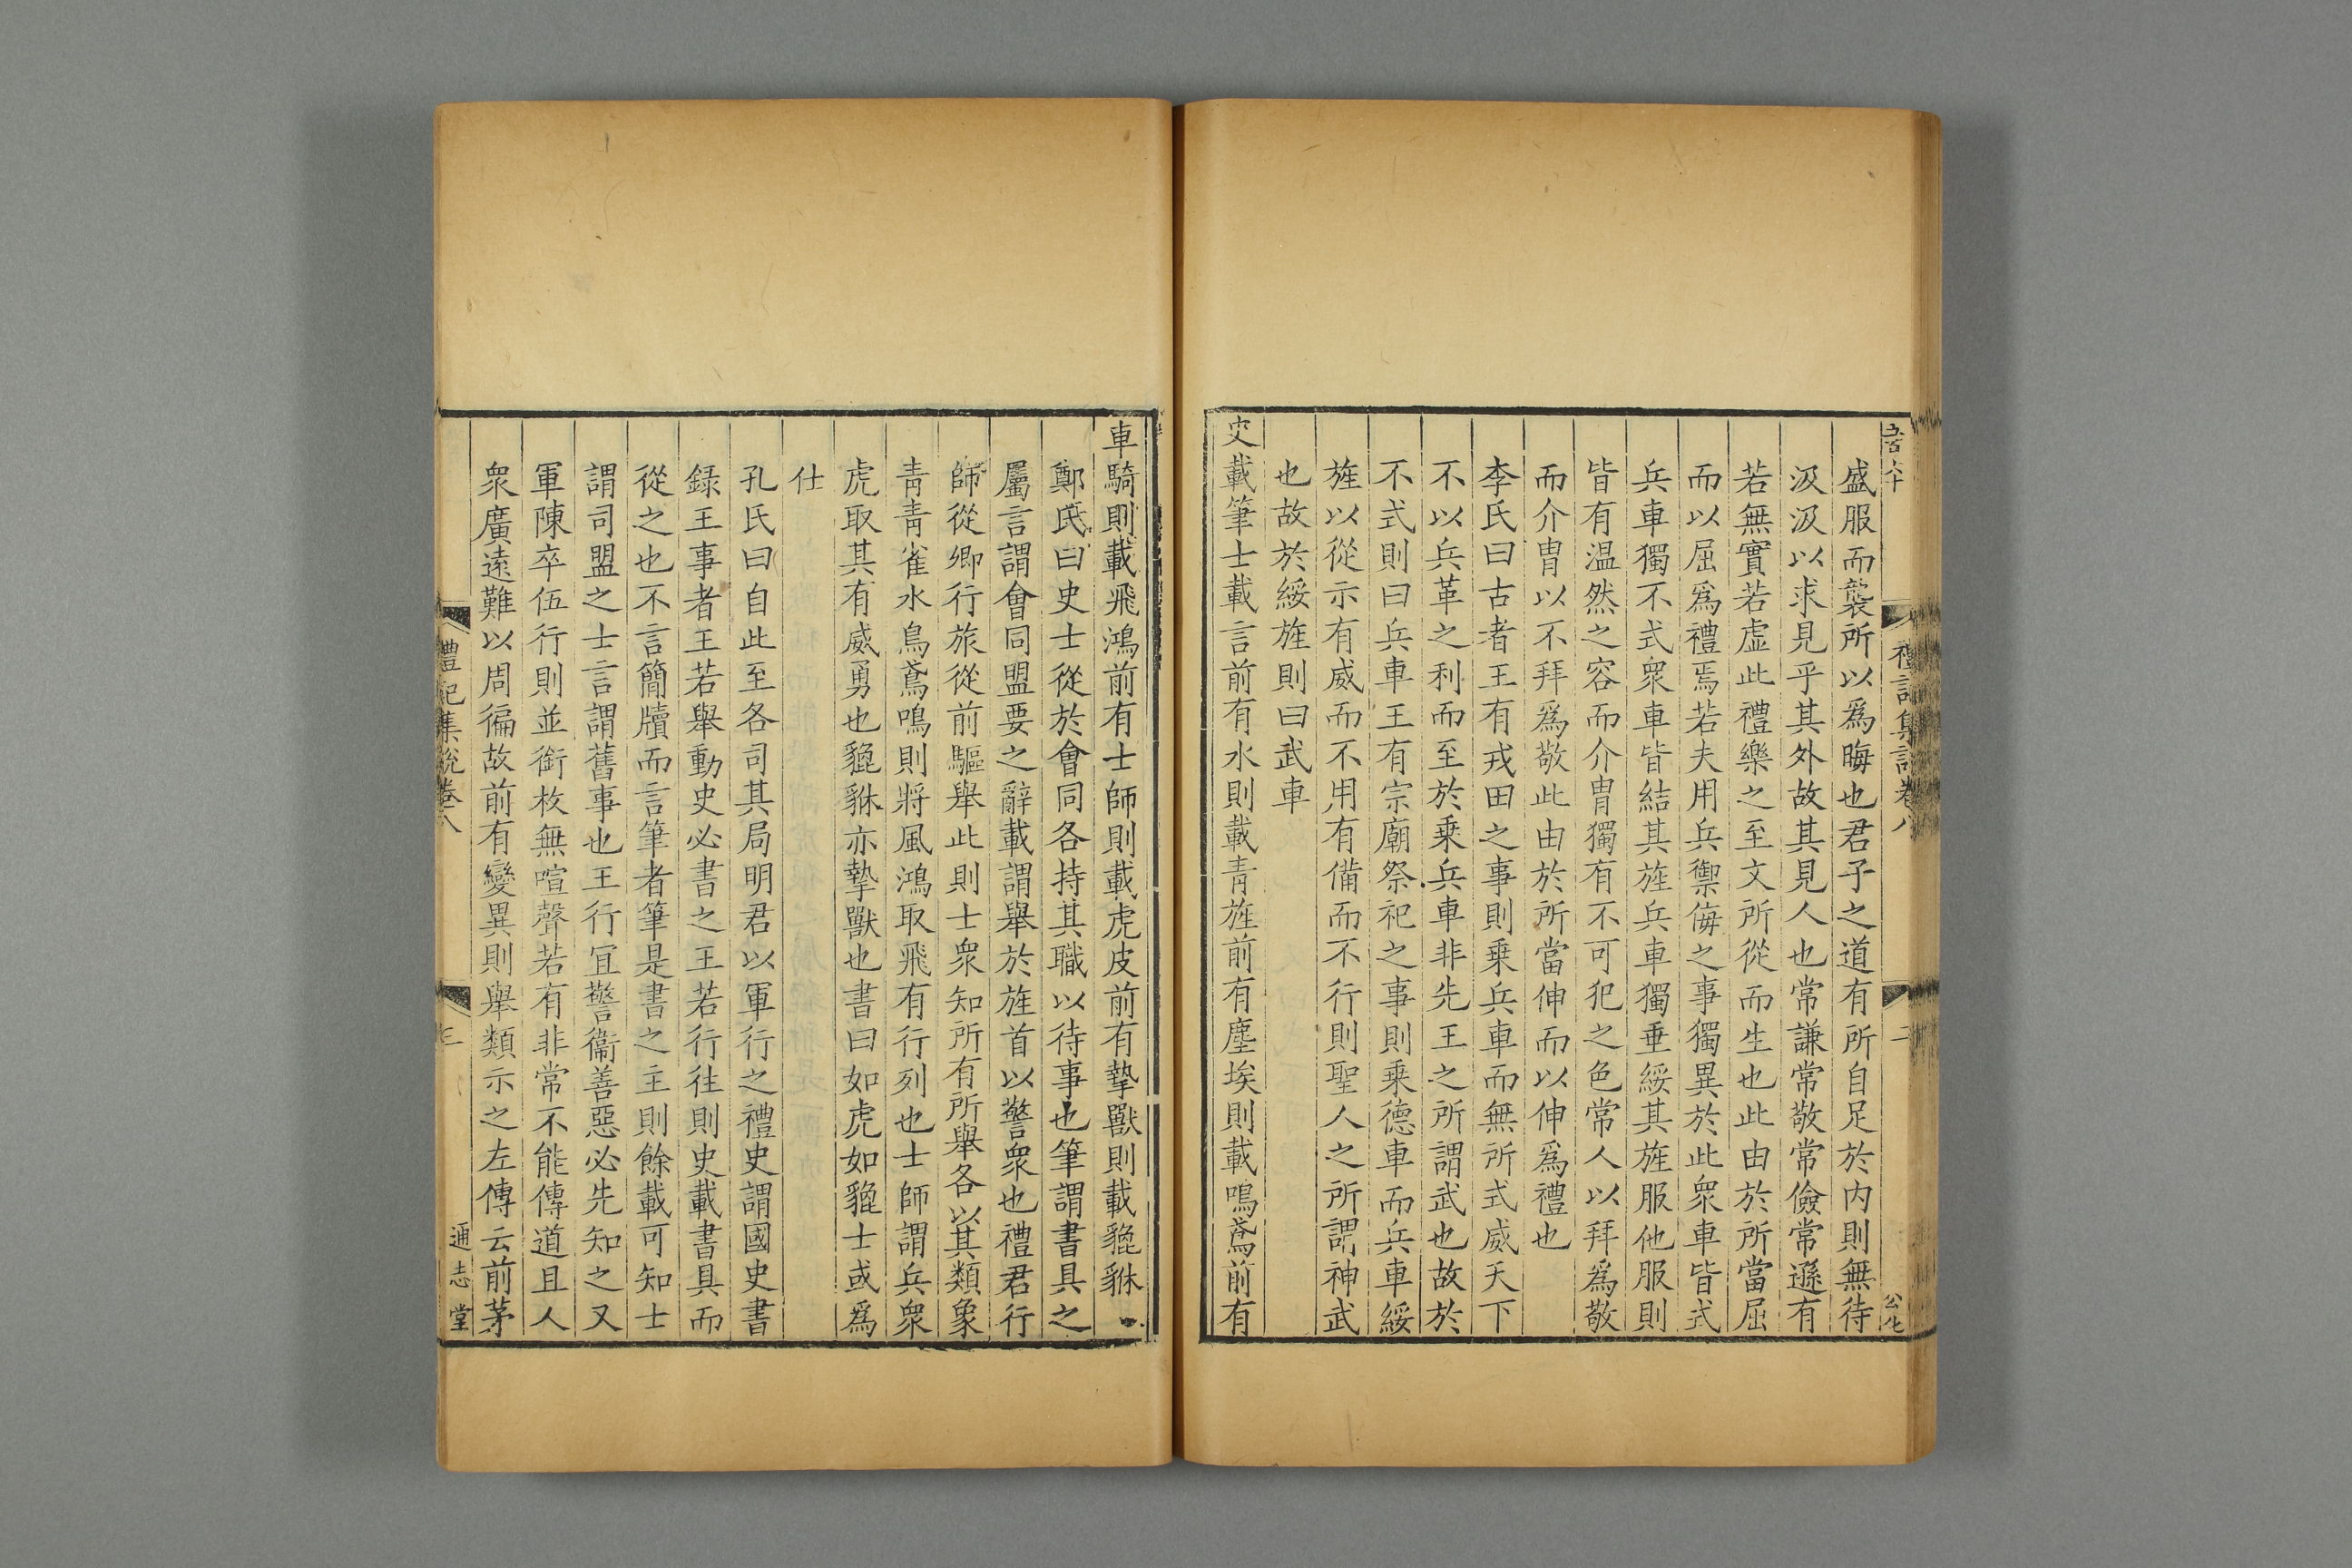 禮記集說卷八
二
盛服而襲所以爲晦也君子之道有所自足於内則無待
汲汲以求見乎其外故其見人也常謙常敬常儉常遜有
若無實若虚此禮樂之至文所從而生也此由於所當屈
而以屈爲禮焉若夫用兵禦侮之事獨異於此衆車皆式
兵車獨不式衆車皆結其旌兵車獨垂綏其旌服他服則
皆有温然之容而介胄獨有不可犯之色常人以拜爲敬
而介胄以不拜爲敬此由於所當伸而以伸爲禮也
李氏曰古者王有戎田之事則乗兵車而無所式威天下
不以兵革之利而至於乗兵車非先王之所謂武也故於
不式則曰兵車王有宗廟祭祀之事則乗德車而兵車綏
旌以從示有威而不用有備而不行則聖人之所謂神武
也故於綏旌則曰武車
史載筆士載言前有水則載青旌前有塵埃則載鳴鳶前有
車騎則載飛鴻前有士師則載虎皮前有摯獸則載貔貅
鄭氏曰史士從於會同各持其職以待事也筆謂書具之
屬言謂會同盟要之辭載謂舉於旌首以警衆也禮君行
師從卿行旅從前驅舉此則士衆知所有所舉各以其類象
青青雀水鳥鳶鳴則將風鴻取飛有行列也士師謂兵衆
虎取其有威勇也貔貅亦摯獸也書曰如虎如貔士或爲
仕
孔氏曰自此至各司其局明君以軍行之禮史謂國史書
録王事者王若舉動史必書之王若行往則史載書具而
從之也不言簡牘而言筆者筆是書之主則餘載可知士
謂司盟之士言謂舊事也王行宜警衞善惡必先知之又
軍陳卒伍行則並銜枚無喧聲若有非常不能傳道且人
衆廣遠難以周徧故前有變異則舉類示之左傳云前茅
禮記集說卷八
三
通志堂